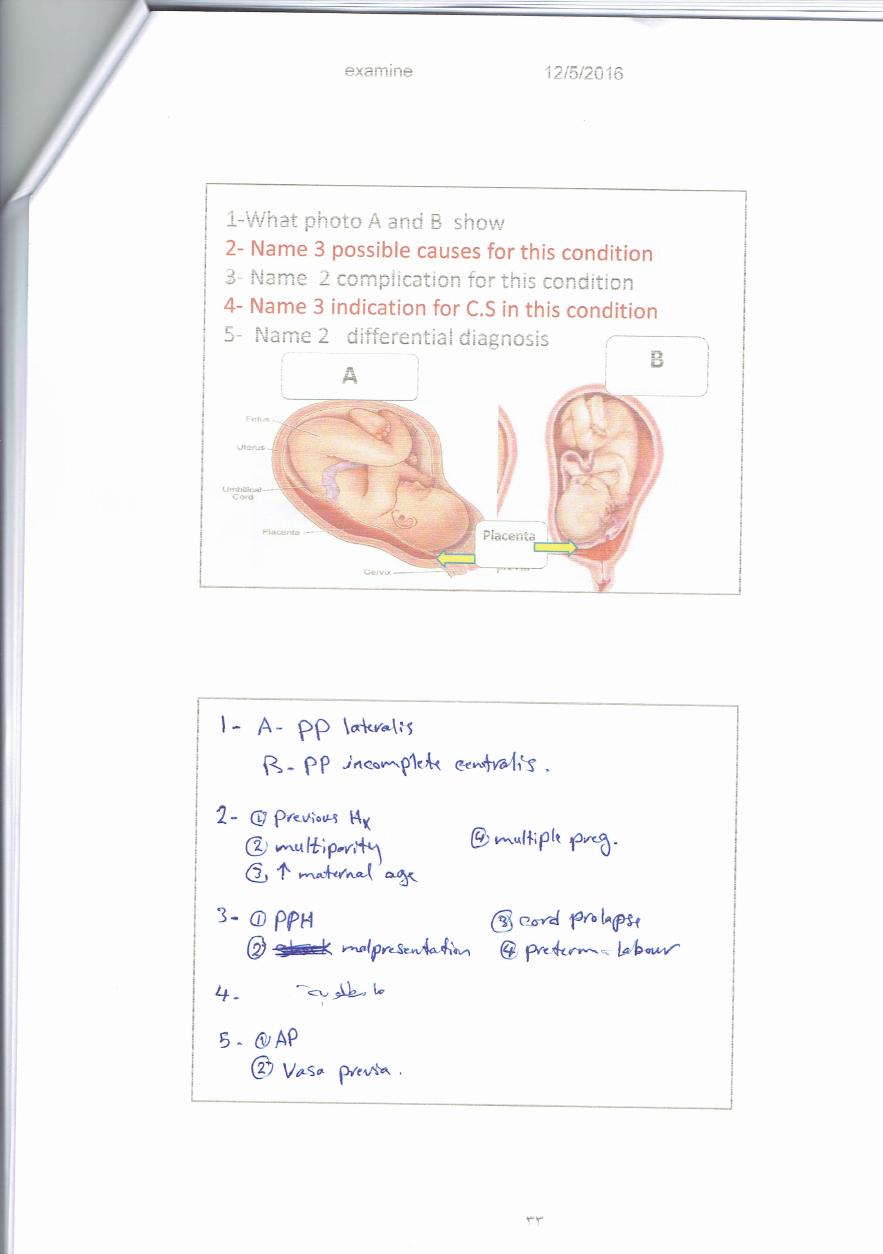 examine 12/5/2016
1-What photo A and B show
2- Name 3 possible causes for this condition
3- Name 2 complication for this condition
4- Name 3 indication for C.S in this condition
5- Name 2 differential diagnosis
A
B
Fetus
Uterus
Umbilical
Cord
Placenta
Placenta
Cervix
1- A- PP lateralis
B- PP incomplete centralis.
2- ① Previous Hx
② multiparity ④ multiple preg.
③ ↑ maternal age
3- ① PPH ③ cord prolapse
② malpresentation ④ preterm labour
4-
5- ① AP
② Vasa previa.
٣٣